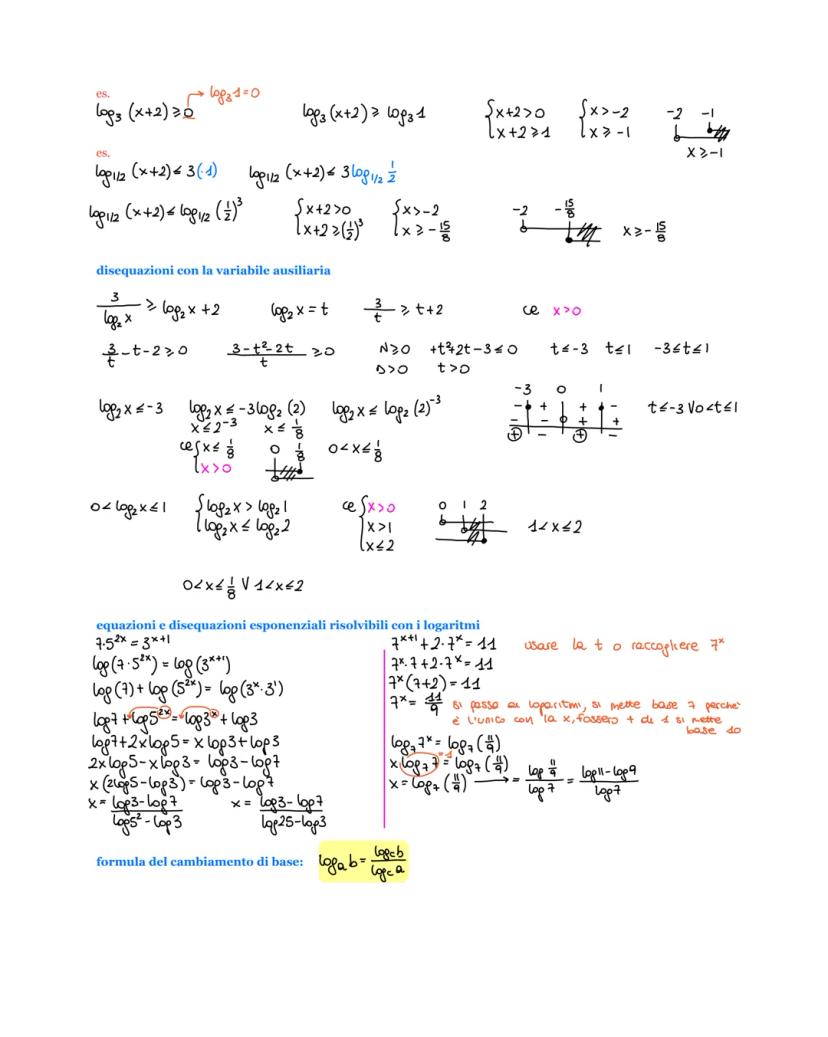 es.
→ log₃1=0
log₃ (x+2) ≥ 0 log₃ (x+2) ≥ log₃ 1 { x+2>0 { x>-2 -2 -1
x+2≥1 x≥-1 x≥-1
es.
log1/2 (x+2) ≤ 3(·1) log1/2 (x+2) ≤ 3log1/2 1/2
log1/2 (x+2) ≤ log1/2 (1/2)³ { x+2>0 { x>-2 -2 -15/8
x+2≥(1/2)³ x≥-15/8 x≥-15/8
disequazioni con la variabile ausiliaria
3/log₂x ≥ log₂x+2 log₂x=t 3/t ≥ t+2 ce x>0
3/t -t-2≥0 3-t²-2t/t ≥0 N≥0 +t²+2t-3≤0 t≤-3 t≤1 -3≤t≤1
D>0 t>0
-3 0 1
log₂x≤-3 log₂x≤-3log₂(2) log₂x≤log₂(2)⁻³ - + + - t≤-3 V 0<t≤1
x≤2⁻³ x≤1/8 - - + +
ce { x≤1/8 0 1/8 0<x≤1/8 + - + -
x>0
0<log₂x≤1 { log₂x>log₂1 ce { x>0 0 1 2
log₂x≤log₂2 x>1 1<x≤2
x≤2
0<x≤1/8 V 1<x≤2
equazioni e disequazioni esponenziali risolvibili con i logaritmi
7·5²ˣ=3ˣ⁺¹
log(7·5²ˣ)=log(3ˣ⁺¹)
log(7)+log(5²ˣ)=log(3ˣ·3¹)
log7+log5²ˣ=log3ˣ+log3
log7+2xlog5=xlog3+log3
2xlog5-xlog3=log3-log7
x(2log5-log3)=log3-log7
x=log3-log7/log5²-log3 x=log3-log7/log25-log3
7ˣ⁺¹+2·7ˣ=11 usare la t o raccogliere 7ˣ
7ˣ·7+2·7ˣ=11
7ˣ(7+2)=11
7ˣ=11/9 si passa ai logaritmi, si mette base 7 perché
è l'unico con la x, fossero + di 1 si mette
base 10
log₇7ˣ=log₇(11/9)
xlog₇7=log₇(11/9) =1
x=log₇(11/9) → = log 11/9/log7 = log11-log9/log7
formula del cambiamento di base: logₐb=log꜀b/log꜀a